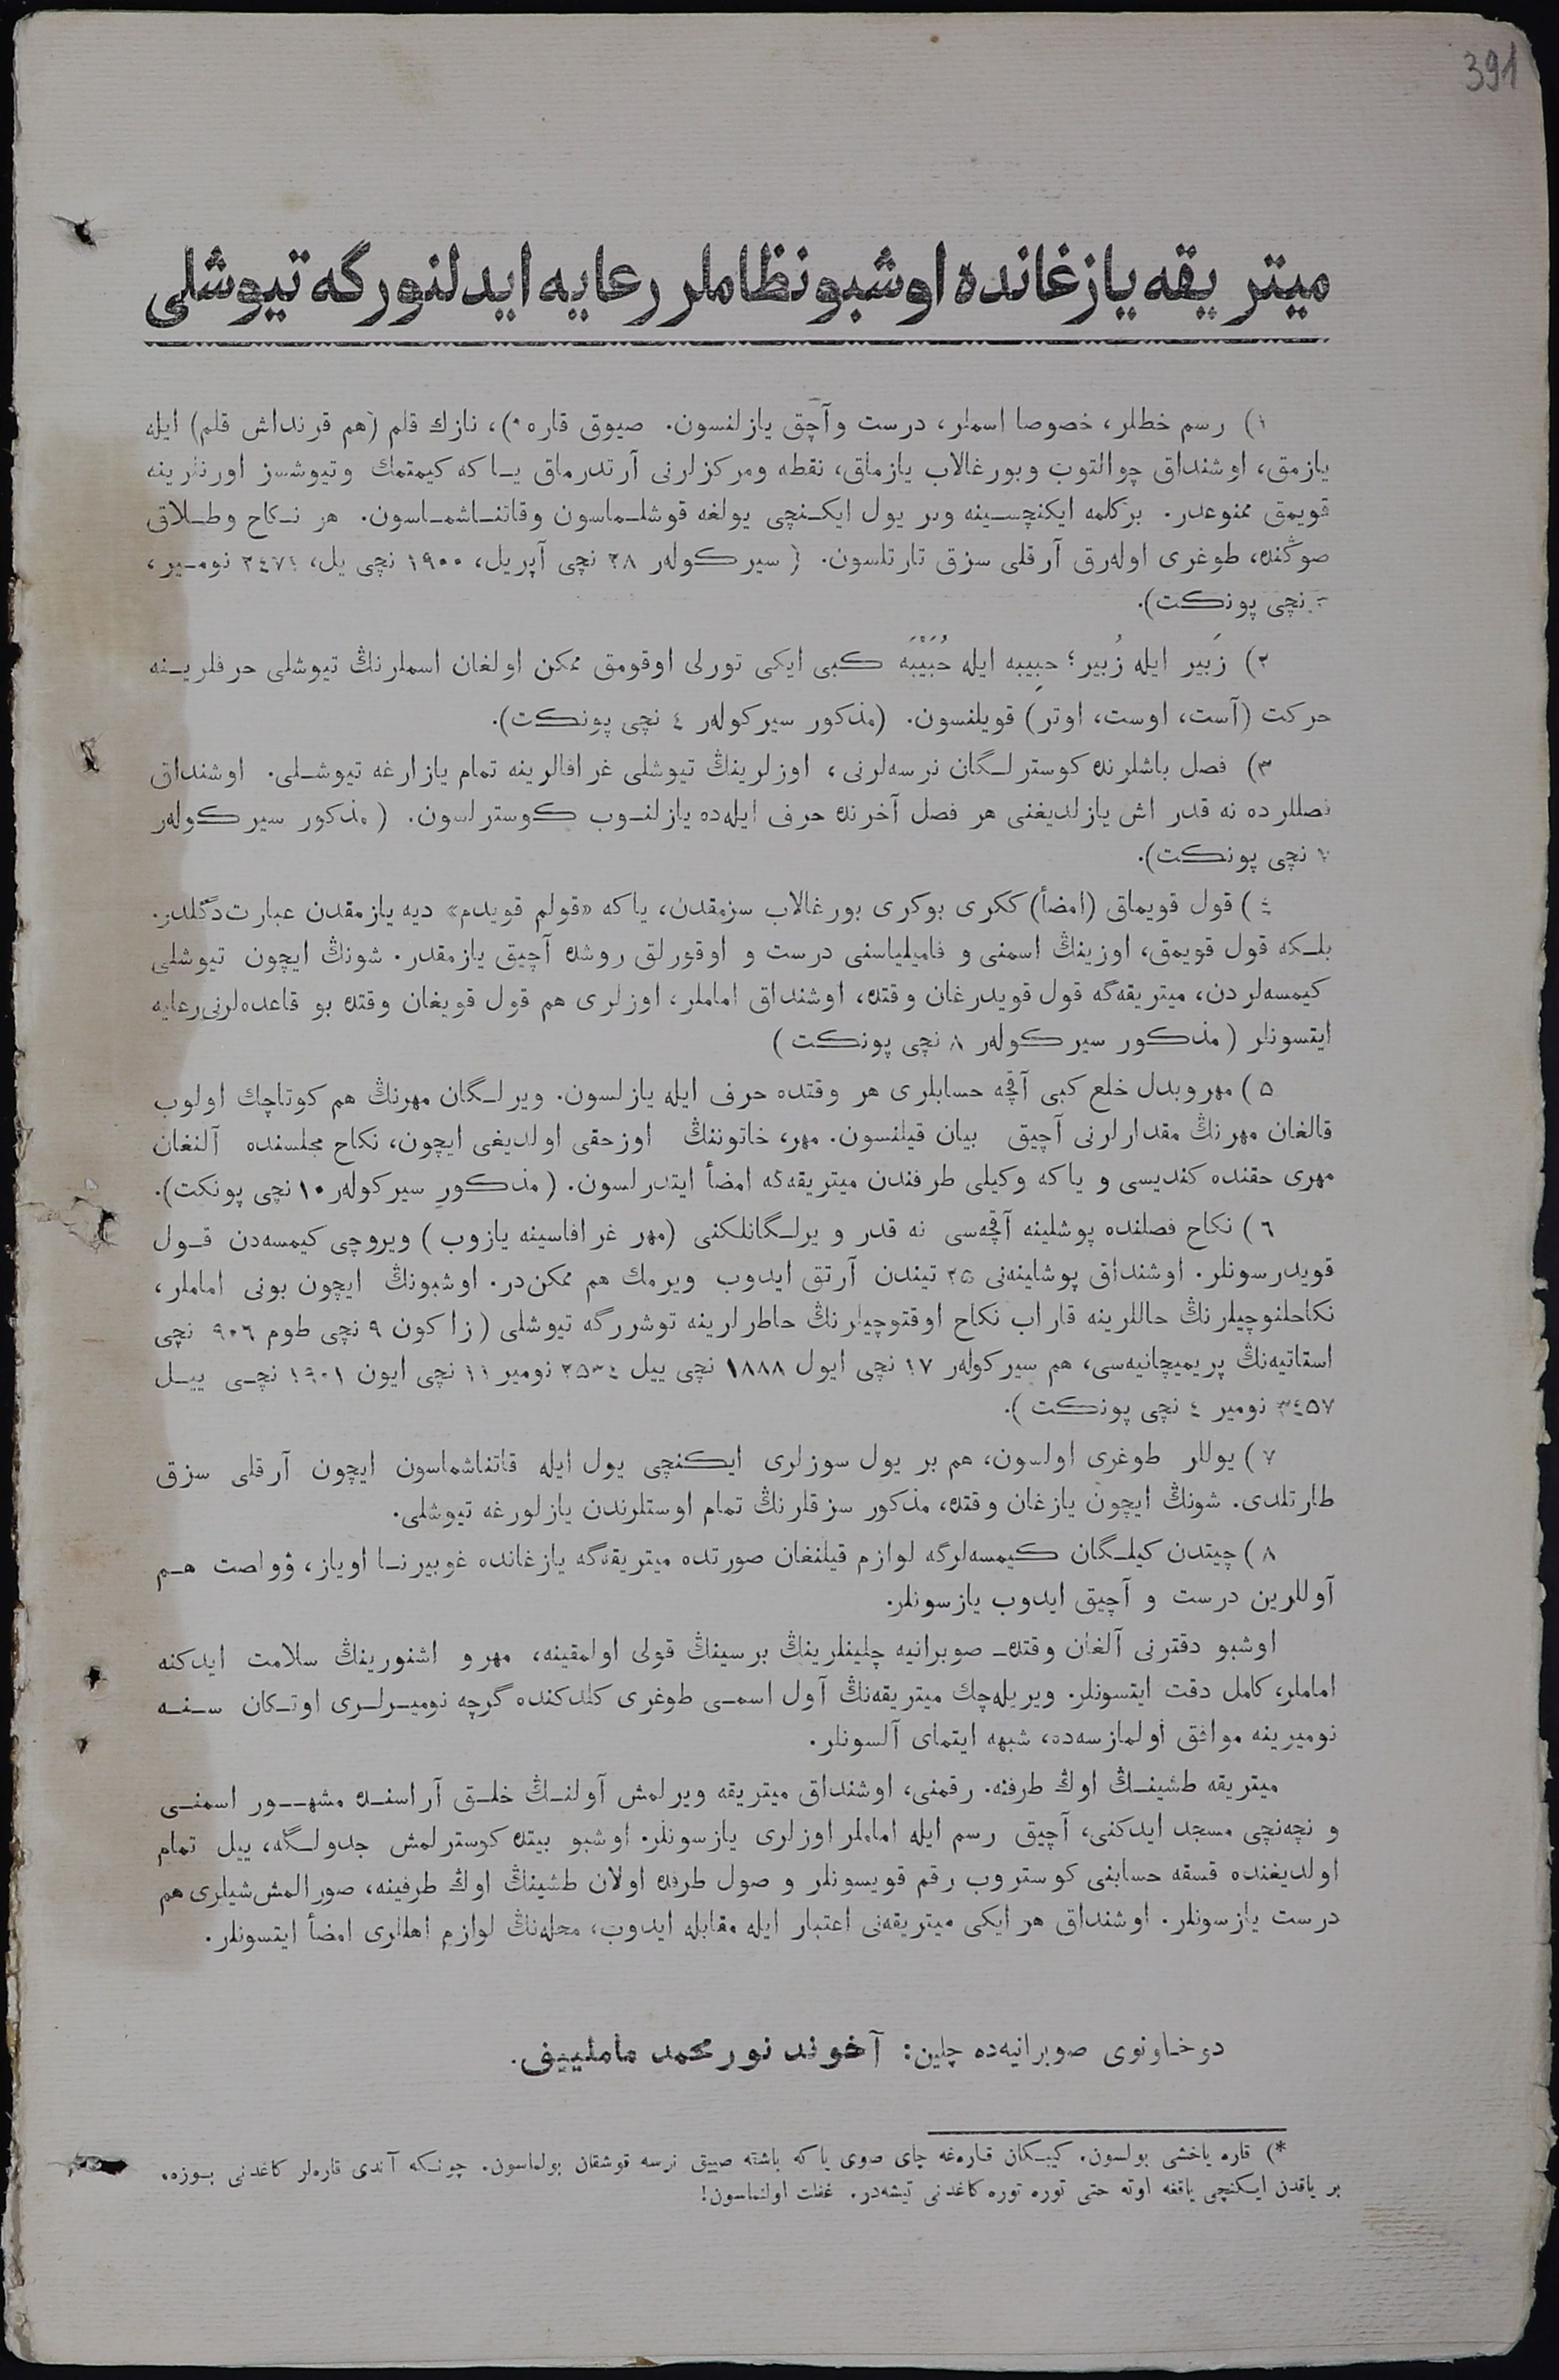 391
ميتريقه يازغانده اوشبو نظاملر رعايه ايدلنورگه تيوشلی
١) رسم خطلر، خصوصا اسملر، درست وآچق يازلنسون. صيوق قاره *)، نازك قلم (هم قرنداش قلم) ايله
يازمق، اوشنداق چوالتوب وبورغالاب يازماق، نقطه ومركزلرنی آرتدرماق يــاكه كيمتمك وتيوشسز اورنلرينه
قويمق ممنوعدر. بركلمه ايكنچســينه وبر يول ايكــنچی يولغه قوشلــماسون وقاتنــاشمــاسون. هر نــكاح وطــلاق
صوڭنده، طوغری اولەرق آرقلی سزق تارتلسون. ( سيركولەر ٢٨ نچی آپريل، ١٩٠٠ نچی يل، ٢٤٧٤ نومــير،
نچی پونكت).
٢) زَبير ايله زُبير؛ حبِيبه ايله حُبَيْبَه كبی ايكی تورلی اوقومق ممكن اولغان اسملرنڭ تيوشلی حرفلريــنه
حركت (آست، اوست، اوتر) قويلنسون. (مذكور سيركولەر ٤ نچی پونكت).
٣) فصل باشلرنده كوسترلــگان نرسەلرنی، اوزلرينڭ تيوشلی غرافالرينه تمام يازارغه تيوشــلی. اوشنداق
فصللرده نه قدر اش يازلديغنی هر فصل آخرنده حرف ايلەده يازلنــوب كوسترلسون. ( مذكور سيركولەر
٧ نچی پونكت).
٤) قول قويماق (امضأ) ككری بوكری بورغالاب سزمقدن، ياكه «قولم قويدم» ديه يازمقدن عبارت دگلدر.
بلــكه قول قويمق، اوزينڭ اسمنی و فاميلياسنی درست و اوقورلق روشده آچيق يازمقدر. شونڭ ايچون تيوشلی
كيمسەلردن، ميتريقەگه قول قويدرغان وقتده، اوشنداق اماملر، اوزلری هم قول قويغان وقتده بو قاعدەلرنی رعايه
ايتسونلر ( مذكور سيركولەر ٨ نچی پونكت )
٥) مهر وبدل خلع كبی آقچه حسابلری هر وقتده حرف ايله يازلسون. ويرلــگان مهرنڭ هم كوتاچك اولوب
قالغان مهرنڭ مقدارلرنی آچيق بيان قيلنسون. مهر، خاتوننڭ اوزحقی اولديغی ايچون، نكاح مجلسنده آلنغان
مهری حقنده كنديسی و ياكه وكيلی طرفندن ميتريقەگه امضأ ايتدرلسون. ( مذكور سيركولەر ١٠ نچی پونكت).
٦) نكاح فصلنده پوشلينه آقچەسی نه قدر و يرلــگانلكنی (مهر غرافاسينه يازوب ) ويروچی كيمسەدن قــول
قويدرسونلر. اوشنداق پوشلينەنی ٢٥ تيندن آرتق ايدوب ويرمك هم ممكن‌در. اوشبونڭ ايچون بونی اماملر،
نكاحلنوچيلرنڭ حاللرينه قاراب نكاح اوقتوچيلرنڭ خاطرلرينه توشررگه تيوشلی ( زاكون ٩ نچی طوم ٩٠٦ نچی
استاتيەنڭ پريميچانيەسی، هم سيركولەر ١٧ نچی ايول ١٨٨٨ نچی ييل ٢٥٣٤ نومير ١١ نچی ايون ١٩٠١ نچــی ييــل
٣٤٥٧ نومير ٤ نچی پونكت ).
٧) يوللر طوغری اولسون، هم بر يول سوزلری ايكنچی يول ايله قاتناشماسون ايچون آرقلی سزق
طارتلدی. شونڭ ايچون يازغان وقتده، مذكور سزقلرنڭ تمام اوستلرندن يازلورغه تيوشلی.
٨) چيتدن كيلــگان كيمسەلرگه لوازم قيلنغان صورتده ميتريقەگه يازغانده غوبيرنــا اوياز، ۋولصت هــم
آوللرين درست و آچيق ايدوب يازسونلر.
اوشبو دفترنی آلغان وقتده صوبرانيه چلينلرينڭ برسينڭ قولی اولمقينه، مهر و اشنورينڭ سلامت ايدكنه
اماملر، كامل دقت ايتسونلر. ويريلەچك ميتريقەنڭ آول اسمــی طوغری كلدكنده گرچه نوميــرلــری اوتــكان ســنــه
نوميرينه موافق اولمازسەده، شبهه ايتمای آلسونلر.
ميتريقه طشينــڭ اوڭ طرفنه. رقمنی، اوشنداق ميتريقه ويرلمش آولنــڭ خلــق آراسنــده مشهــور اسمنــی
و نچەنچی مسجد ايدكنی، آچيق رسم ايله اماملر اوزلری يازسونلر. اوشبو بيتده كوسترلمش جدولــگه، ييل تمام
اولديغنده قسقه حسابنی كوستروب رقم قويسونلر و صول طرفده اولان طشينڭ اوڭ طرفينه، صورالمش شيلری هم
درست يازسونلر. اوشنداق هر ايكی ميتريقەنی اعتبار ايله مقابله ايدوب، محلەنڭ لوازم اهللری امضأ ايتسونلر.
دوخاونوی صوبرانيەده چلين: آخوند نورمحمد ماملييف.
*) قاره ياخشی بولسون. كيبــكان قارەغه چای صوی ياكه باشته صييق نرسه قوشقان بولماسون. چونــكه آندی قارەلر كاغدنی بــوزه،
بر ياقدن ايــكنچی ياقغه اوته حتی توره توره كاغدنی تيشەدر. غفلت اولنماسون!